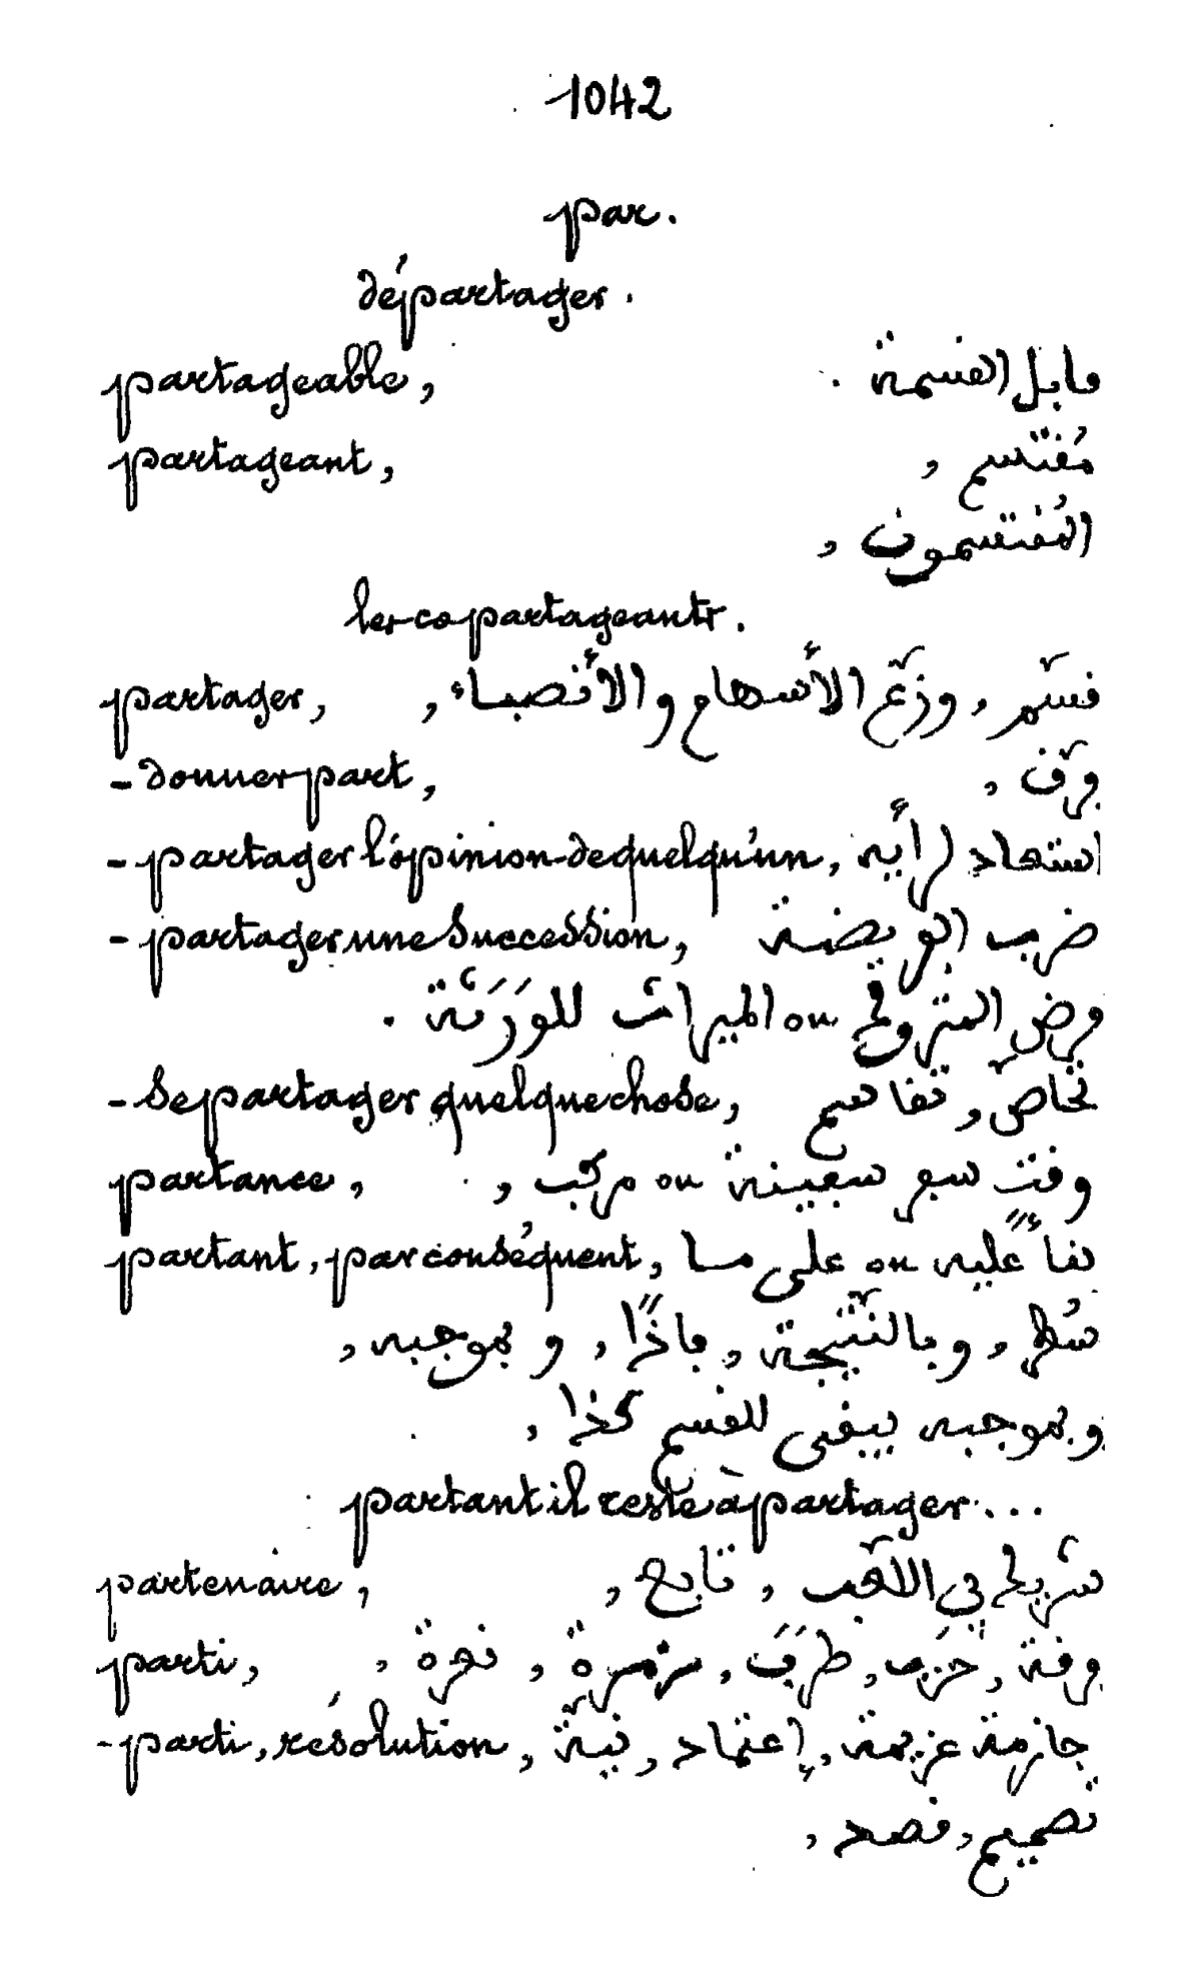 1042
par.
départager.
partageable, قابل القسمة.
partageant, مُقْتَسِم,
المُقْتَسِمون,
les co partageants.
partager, قسَّم, وزَّع الأسهام والأنصباء,
- donner part, فرَّق,
- partager l'opinion de quelqu'un, لرأيه
- partager une succession, ضرب الفريضة
فرض المتروك ou الميراث للوَرَثَة.
- se partager quelque chose, تخاصّ, تقاسم
partance, وقت سفر سفينة ou مركب,
partant, par conséquent, عليه ou على ما
سُطر, وبالنّتيجة, فإذًا, و بموجبه,
وبموجبه يبقى للقسم كذا,
partant il reste à partager...
partenaire, شريك في اللّعب, تابع,
parti, فرقة, حَزب, طَرَف, زمرة,
- parti, résolution, عزيمة, إعتماد, نيّة,
تصميم, قصد,